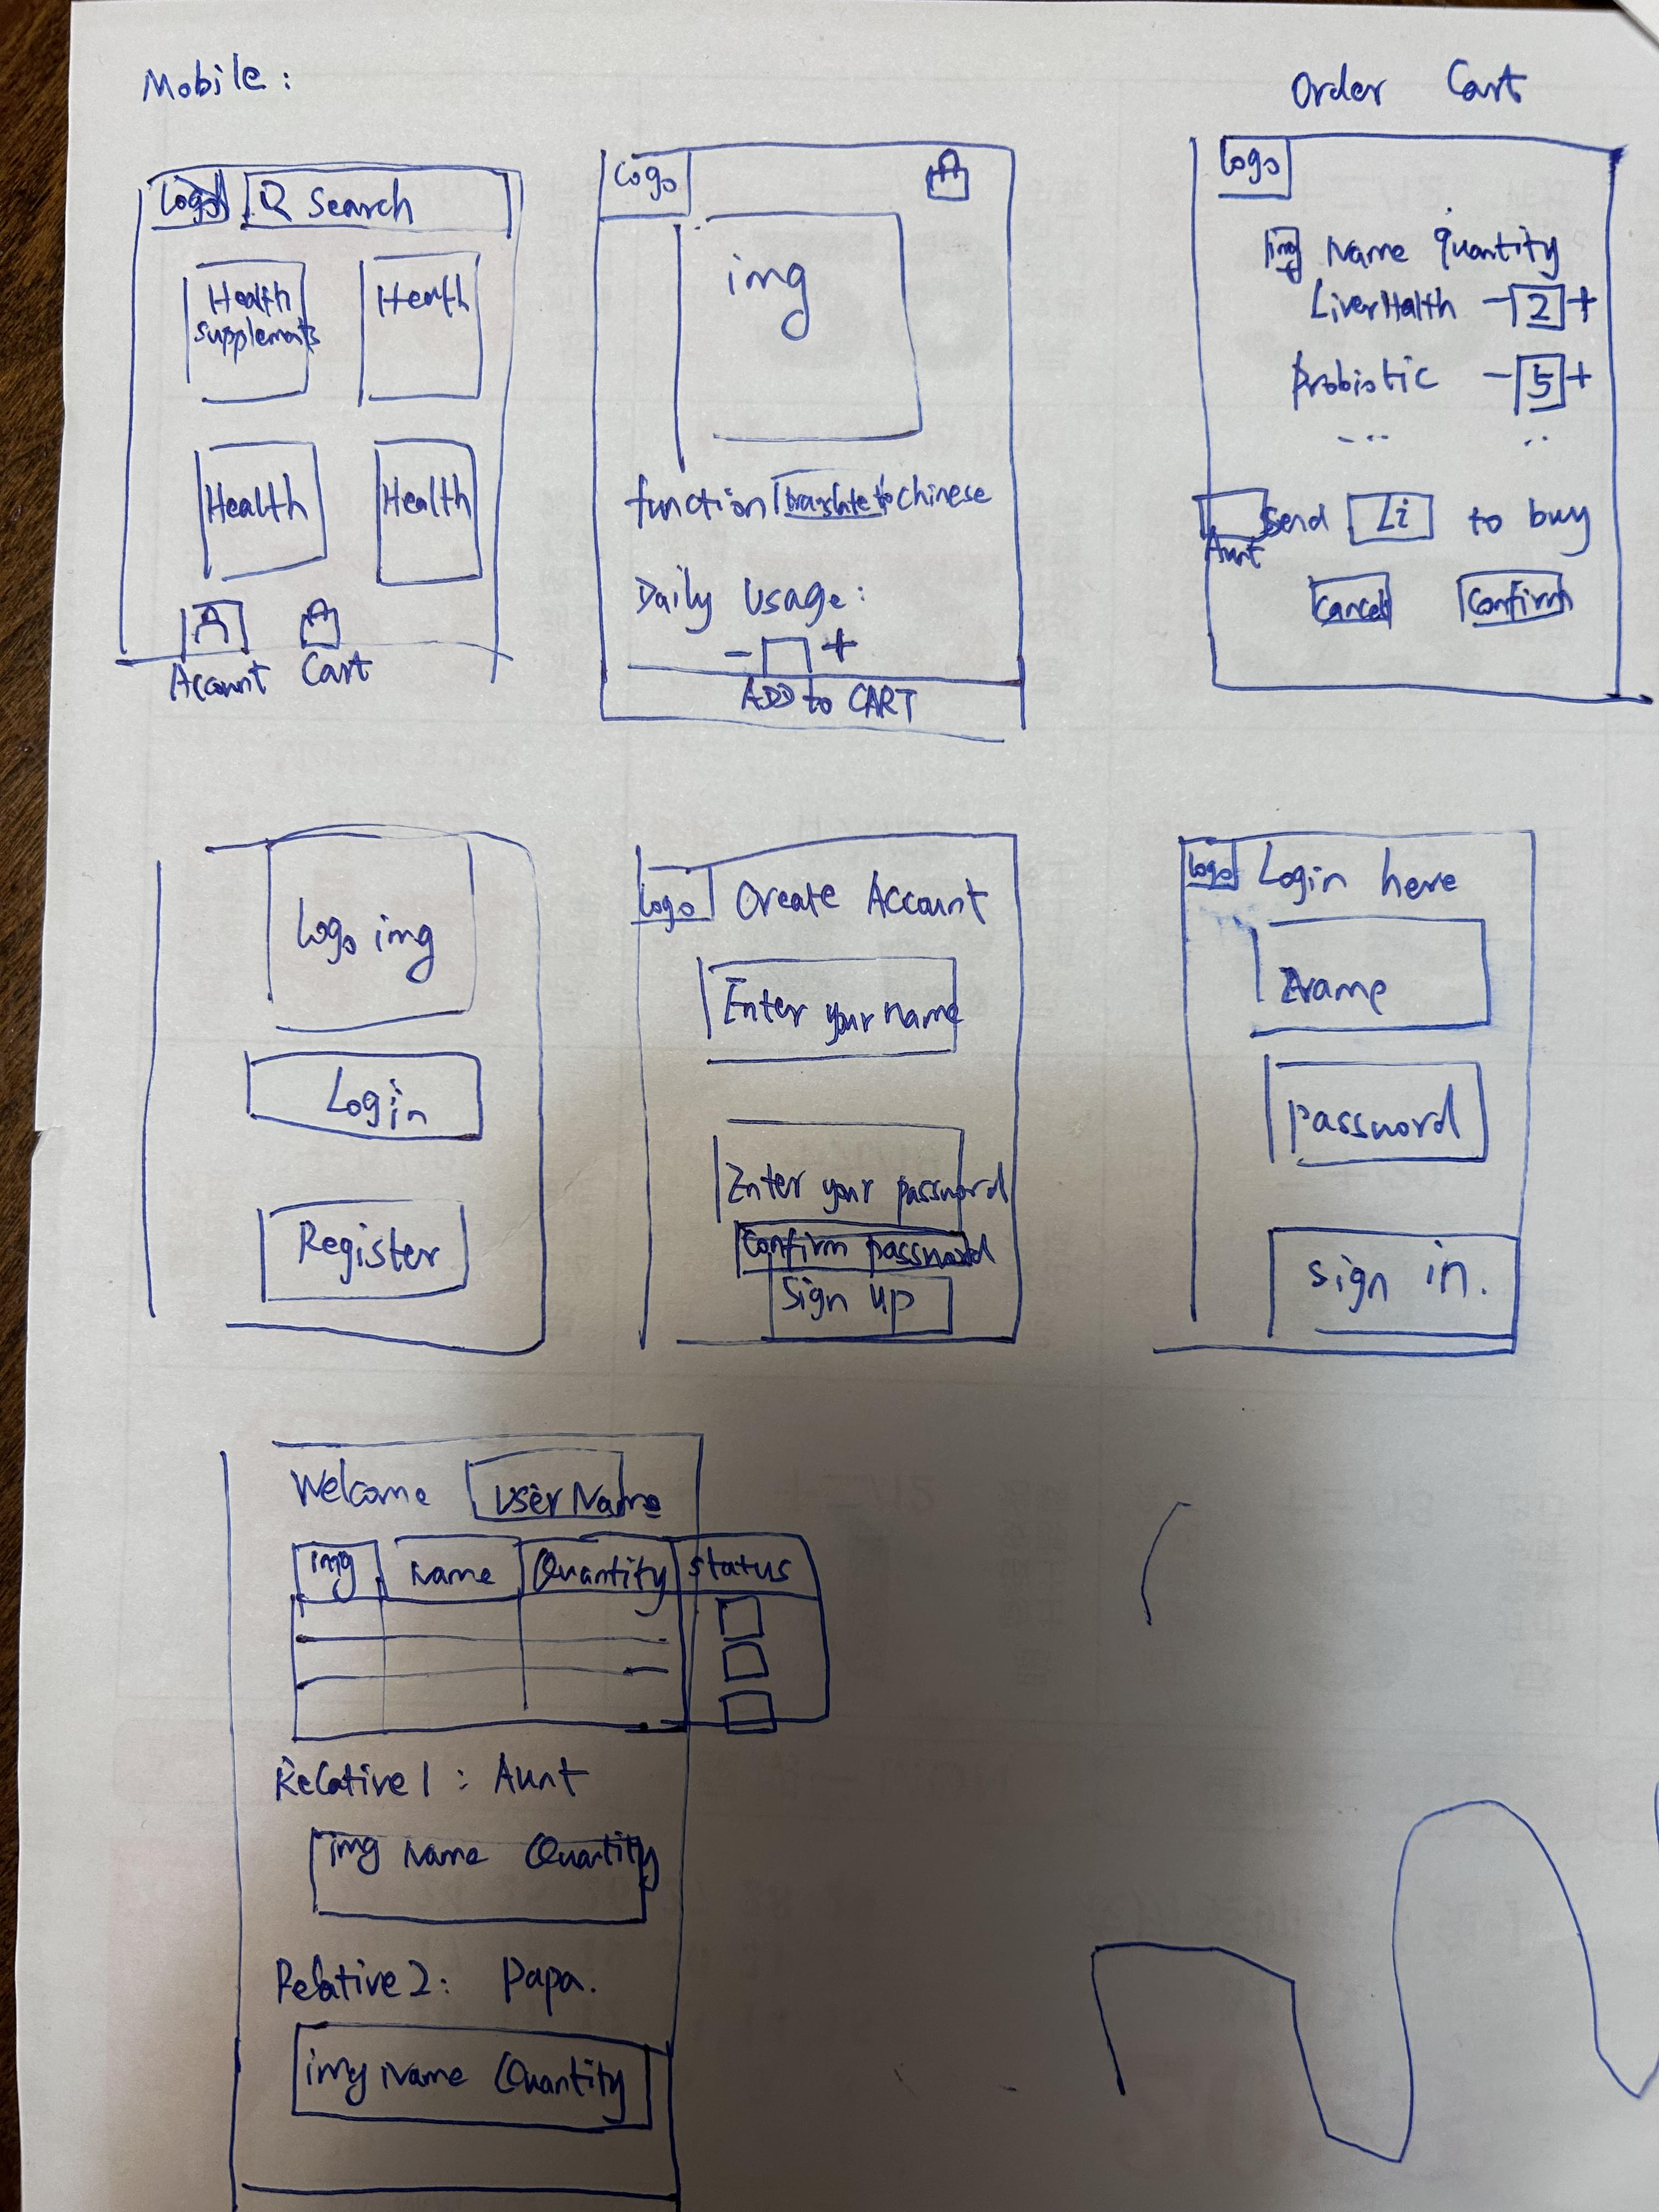 Mobile:
Order Cart
Logo Search
Health
supplements
Health
Health
Health
Account Cart
Logo
img
function translate to chinese
Daily Usage:
- +
ADD to CART
Logo
img Name Quantity
LiverHealth - 2 +
Probiotic - 5 +
... ..
Send Li to buy
Aunt
Cancel Confirm
Logo img
Login
Register
Logo Create Account
Enter your name
Enter your password
Confirm password
Sign up
Logo Login here
name
password
sign in.
Welcome UserName
img Name Quantity status
Relative 1 : Aunt
img Name Quantity
Relative 2: Papa.
img Name Quantity